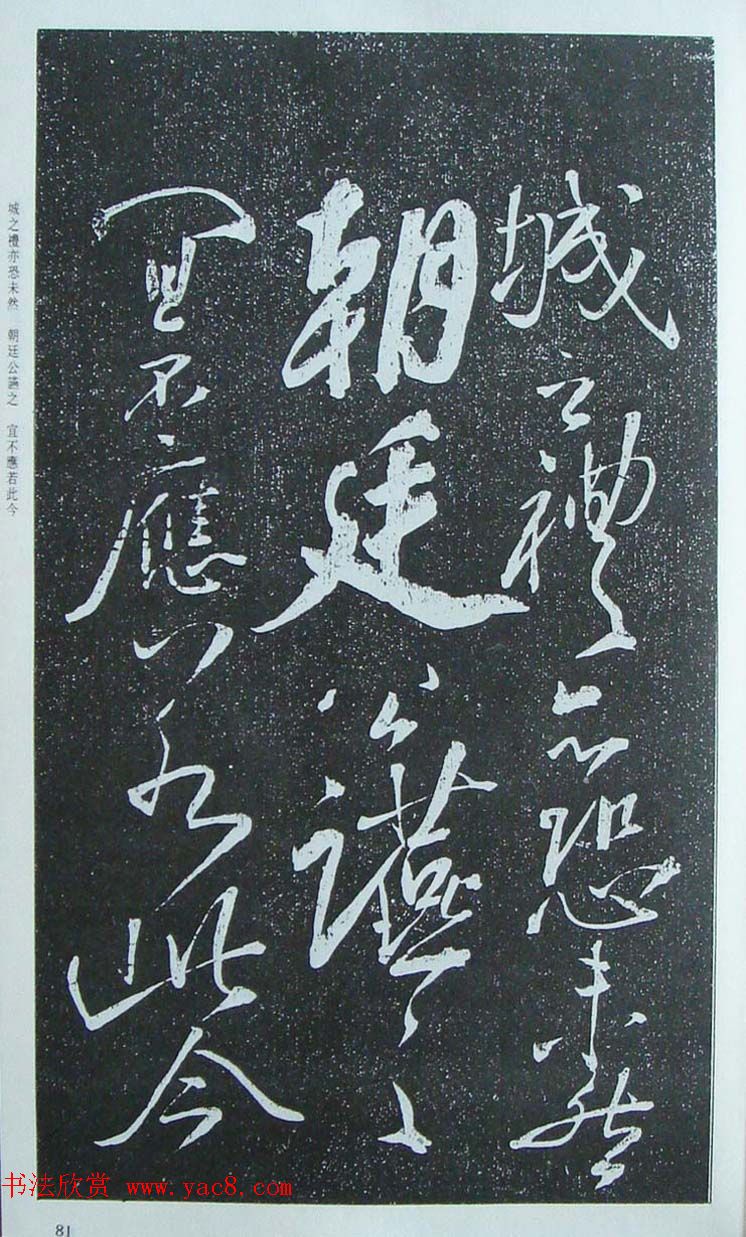 城之禮亦恐未然
朝廷公讌之
宜不應若此今
城之禮亦恐未然 朝廷公讌之 宜不應若此今
书法欣赏 www.yac8.com
81